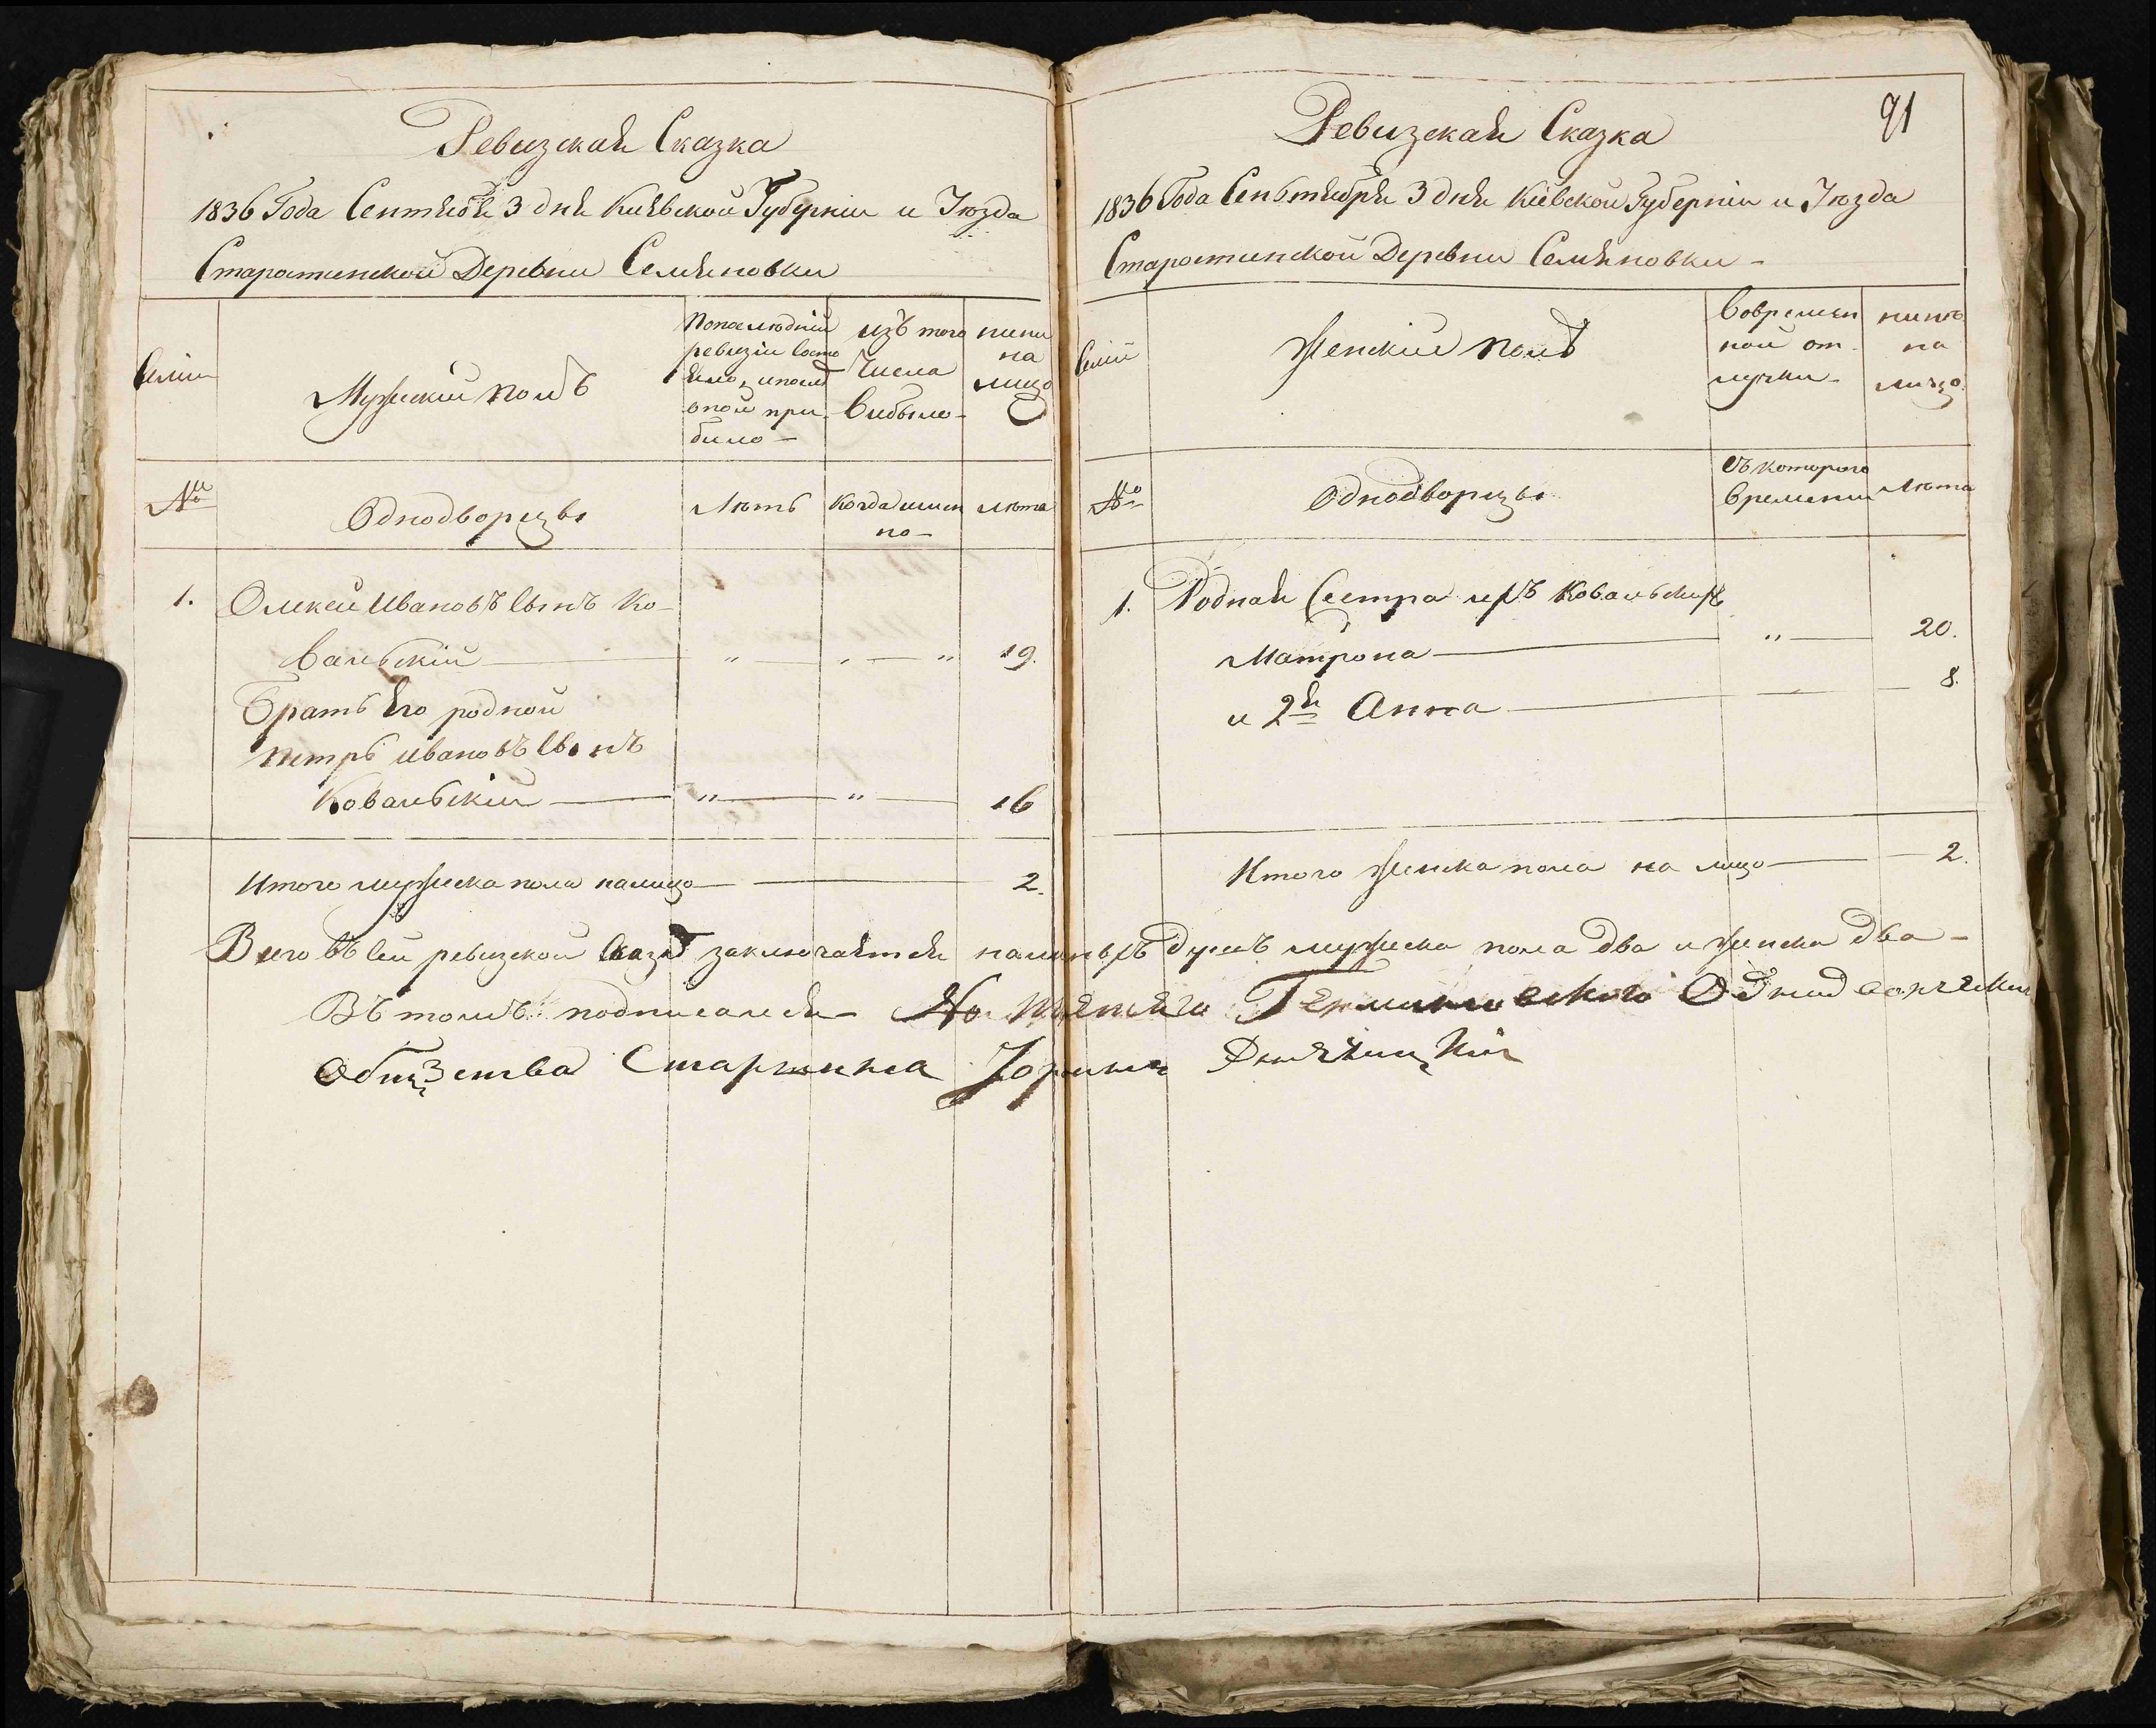 Ревизская Сказка
1836 Года Сентября 3 дня Киевской Губерніи и Уезда
Старостинской Деревни Семяновки
Семіи
Мужеский полъ
По последній
ревизіи состо
яло, и после
оной при
било —
изъ того
числа
Выбыло —
ныне
на
лицо
№
Однодворцы
Летъ
Когда имен
но —
Лета
1. Олексей Ивановъ Сынъ Ко-
вальскій — " " " 19.
Братъ Его родной
Петръ Ивановъ Сынъ
Ковальскій — " — " — 16
Итого мужеска пола налицо — 2.
91
Ревизская Сказка
1836 Года Сенбтября 3 дня Кіевской Губерніи и Уезда
Старостинской Деревни Семяновки —
Семіи
Женский полъ
Во времен
ной от-
лучки —
ныне
на
лицо.
№
Однодворцы
съ которого
времени
Лета
1. Родная Сестра ихъ Ковальскихъ
Матрона — " — 20.
и 2я Анна — 8.
Итого женска пола на лицо — 2.
Всего въ сей ревизской сказке заключается наличныхъ душъ мужеска пола два и женска два —
Въ томъ подписался —
Общества Старшина